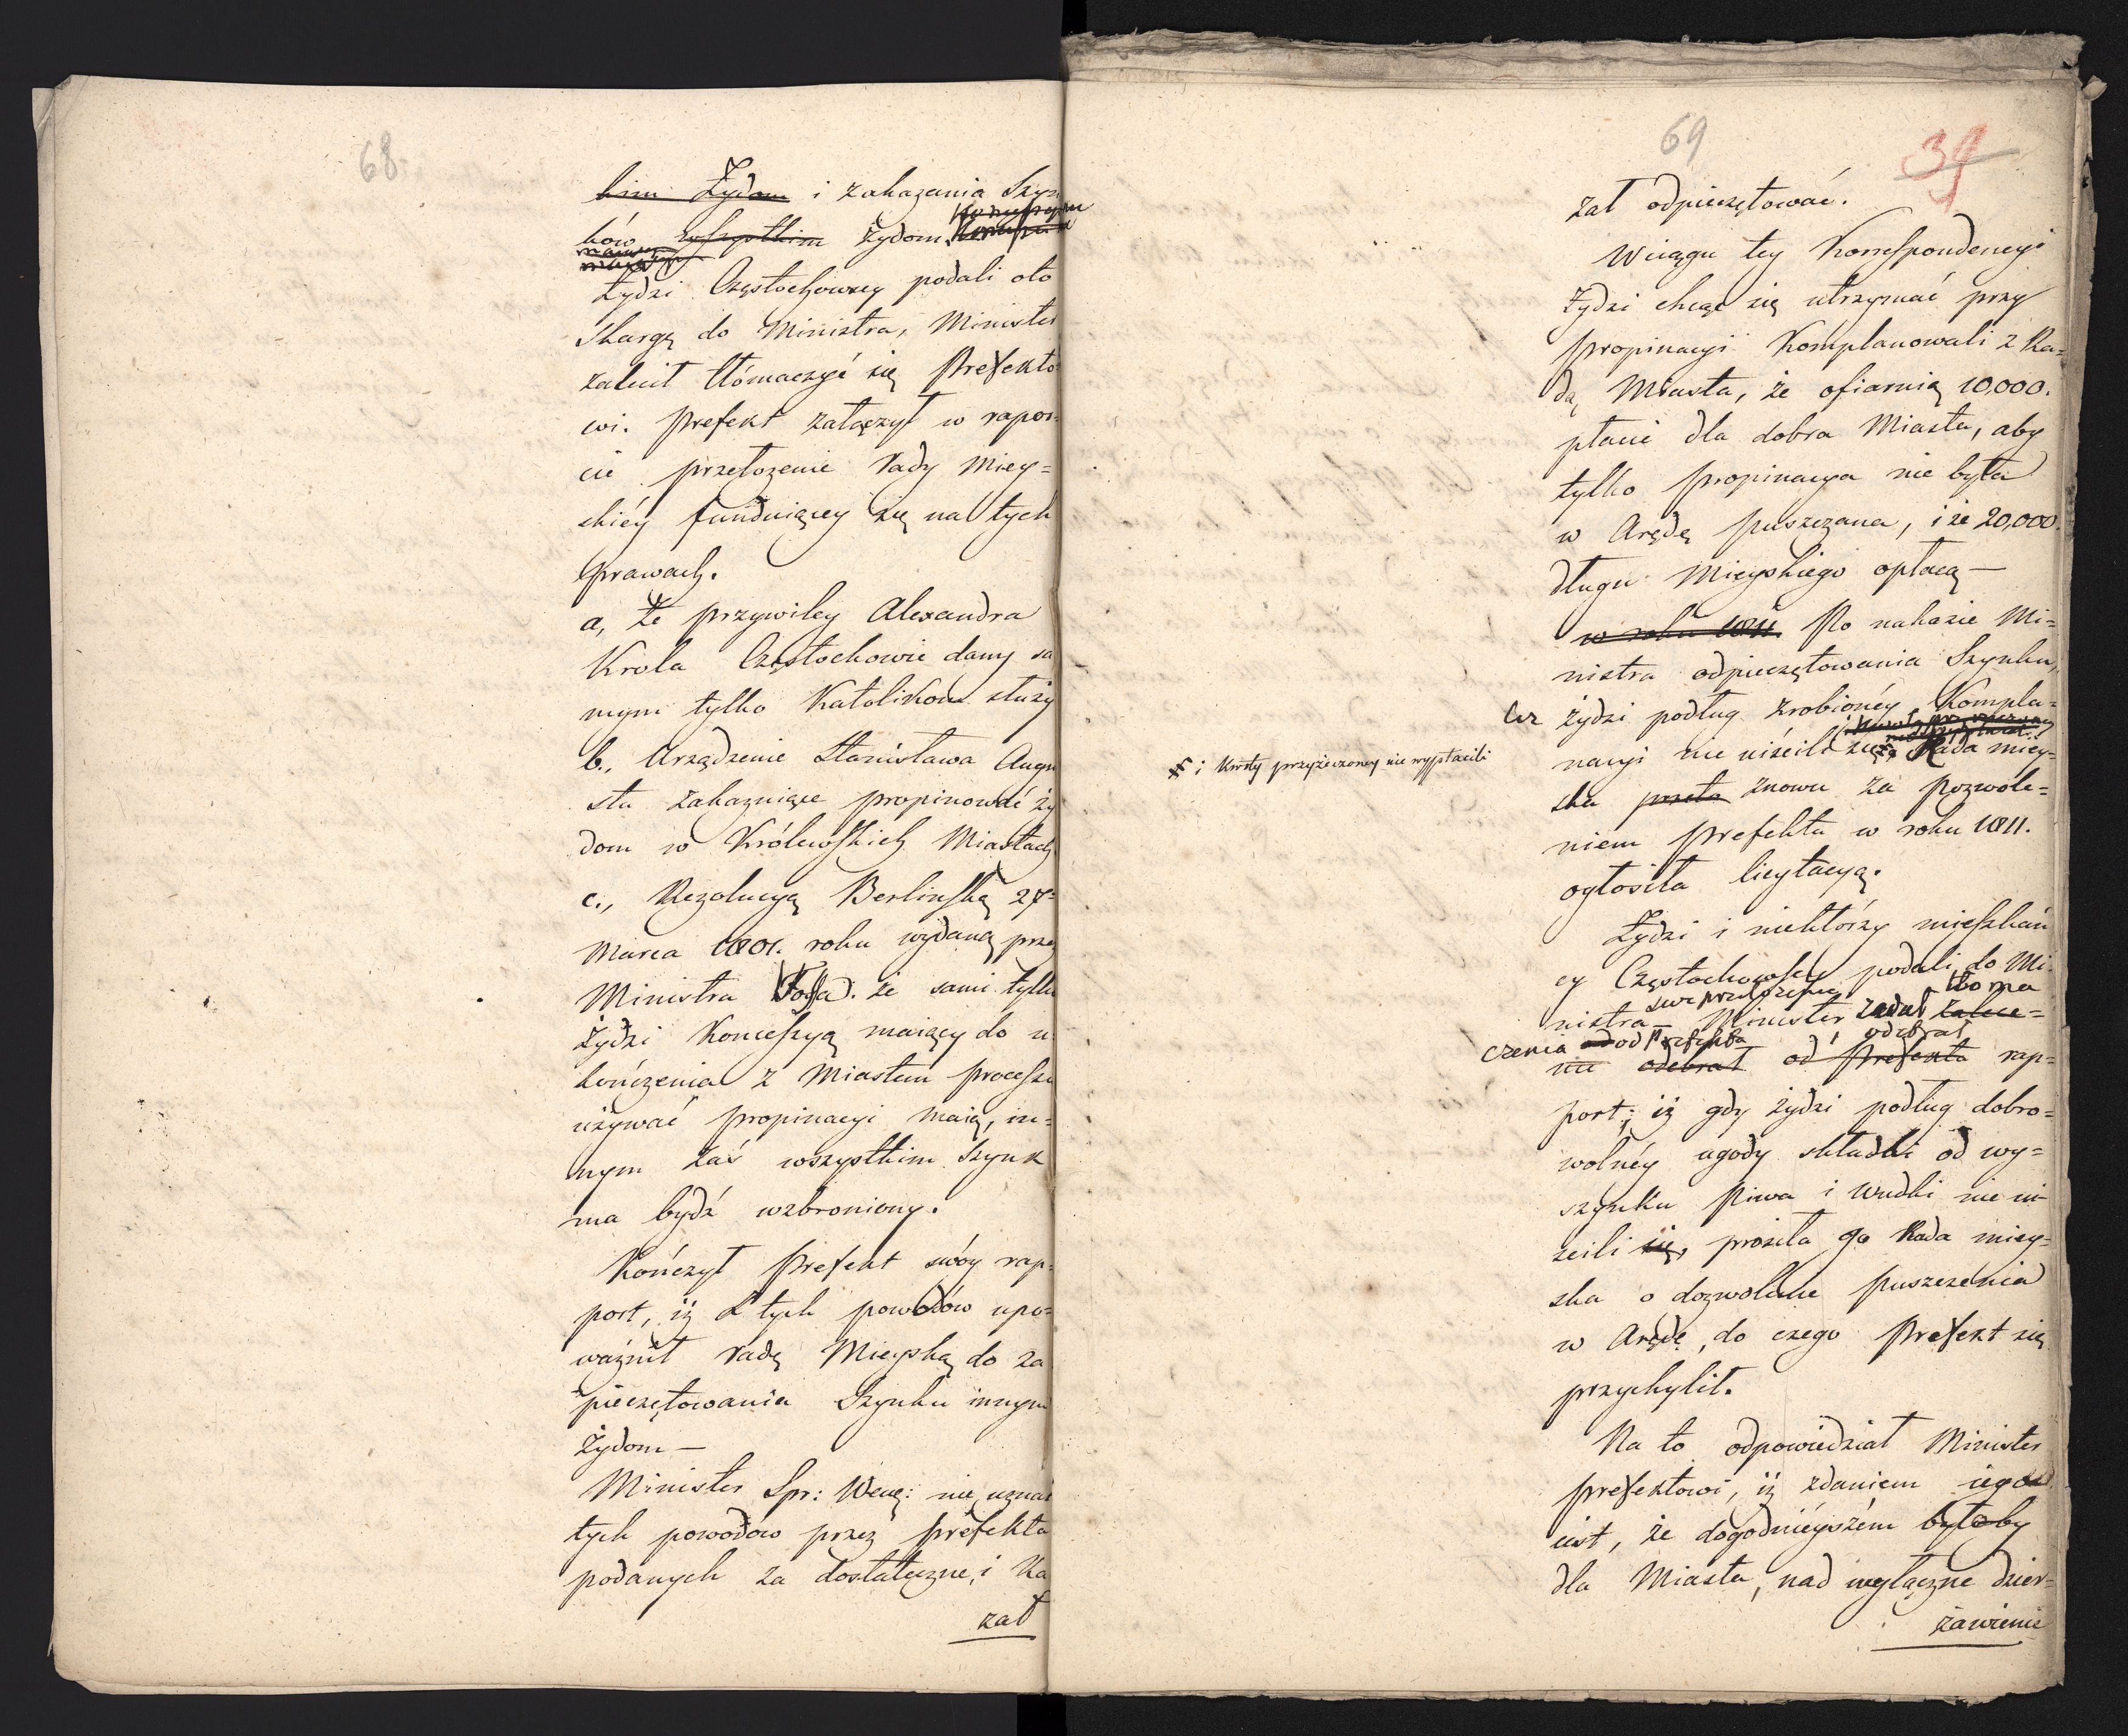 68
kim Żydom i zakazania Szyn
ków wszystkim Żydom
Żydzi Częstochowscy podali oto
Skargę do Ministra, Minister
zalecił tłómaczyć się Prefekto
wi. Prefekt załączył w rapor=
cie przełożenie Rady Miey=
skiéy funduiącey się na tych
prawach.
a, Że przywiley Alexandra
Krola Częstochowie dany sa
mym tylko Katolikom służy
b., Urządzenie Stanisława Augu
sta zakazuiące propinować ży
dom w Królewskich Miastach
c., Rezolucyą Berlińską 27=
Marca 1801. roku wydaną przez
Ministra Vossa. że sami tylko
Żydzi Koncessyą maiący do u
kończenia z Miastem processu
używać propinacyi maią, in=
nym zaś wszystkim Szynk
ma bydź wzbroniony.
Kończył Prefekt swóy rap=
port, iż z tych powodów upo=
ważnił radę Mieyską do za
pieczętowania Szynku innym
Żydom —
Minister Spr: Wewę: nie uznał
tych powodów przez prefekta
podanych za dostateczne, i ka
zał
69
39
zał odpieczętować.
W ciągu tey Korrespondencyi
Żydzi chcąc się utrzymać przy
propinacyi Komplanowali z Ra=
dą Miasta, że ofiaruią 10,000.
płacić dla dobra Miasta, aby
tylko propinacya nie była
w Arędę puszczana, i że 20,000.
długu Mieyskiego opłacą —
w roku 1811. Po nakazie Mi=
nistra odpieczętowania Szynku,
Cz żydzi podług zrobionéy Kompla=
nacyi nie uiścili się, Rada miey=
# i kwoty przyrzeczoney nie wypłacili
ska przeto znowu za pozwole=
niem Prefekta w roku 1811.
ogłosiła licytacyą.
Żydzi i niektórzy mieszkań
cy Częstochowscy podali do Mi=
swe przełożenie
nistra — Minister zadał tłoma
zalece=
czenia od Prefekta, odebrał
nie odebrał od Prefekta rap=
port; iż gdy żydzi podług dobro=
wolnéy ugody składki od wy=
szynku Piwa i Wudki nie ui
scili się, prosiła go Rada miey=
ska o dozwolenie puszczenia
w Arędę, do czego Prefekt się
przychylił.
Na to odpowiedział Minister
prefektowi, iż zdaniem iego
iest, że dogodnieyszém byłoby
dla Miasta, nad wyłączne dzier=
żawienie